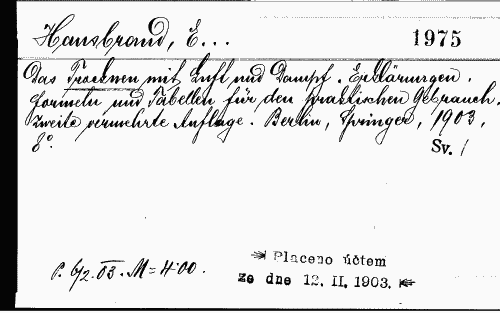 Hausbrand, E...
1975
Das Trocknen mit Luft und Dampf. Erklärungen,
Formeln und Tabellen für den praktischen Gebrauch.
Zweite vermehrte Auflage. Berlin, Springer, 1903.
8°.
Sv. 1
P. 6/2. 03. M = 4·00.
Placeno účtem
ze dne 12. II. 1903.